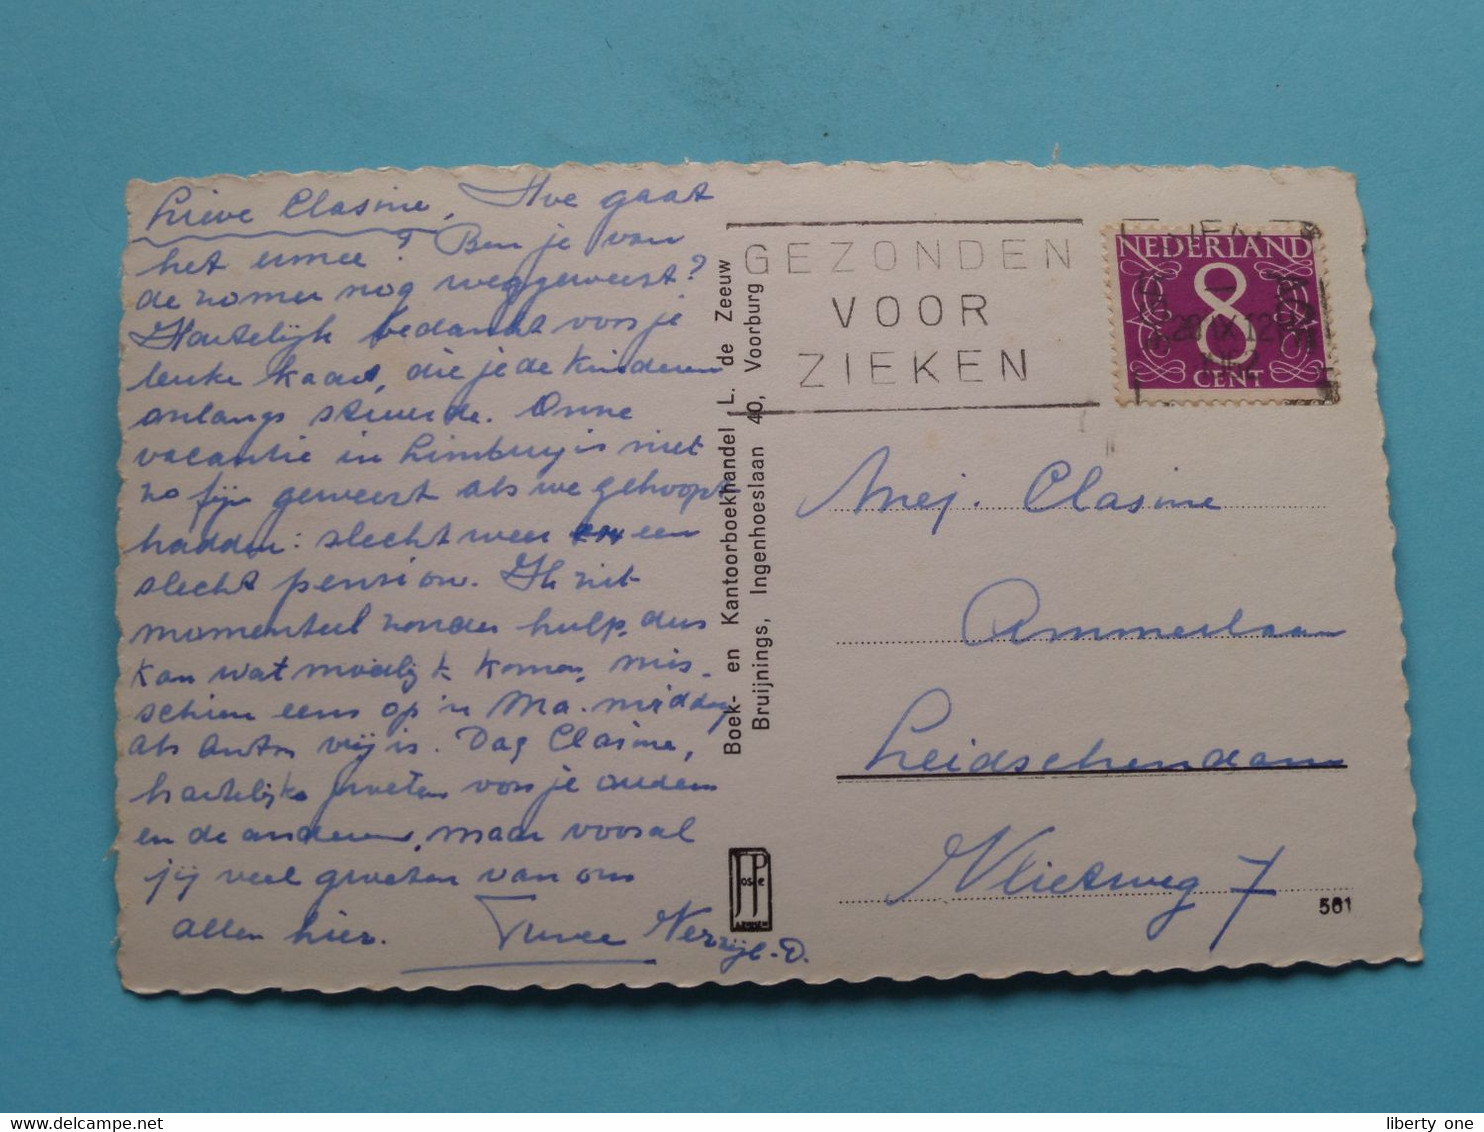 Lieve Clasine, Hoe gaat
het ermee? Ben je van
de zomer nog weggeweest?
Hartelijk bedankt voor je
leuke kaart, die je de kinderen
onlangs stuurde. Onne
vacantie in Limburg is niet
zo fijn geweest als we gehoopt
hadden: slecht weer en een
slecht pension. Ik zit
momenteel zonder hulp, dus
kan wat moeilijk komen, mis-
schien eens op 'n Ma. middag
als Anton vrij is. Dag Clasine,
hartelijke groeten voor je ouders
en de anderen, maar vooral
jij veel groeten van ons
allen hier.
Boek- en Kantoorboekhandel L. de Zeeuw
Bruijnings, Ingenhoeslaan 40, Voorburg
GEZONDEN
VOOR
ZIEKEN
NEDERLAND
8
CENT
Mej. Clasine
Ammerlaan
Leidschendam
Vlietweg 7
561
JosPe
liberty one